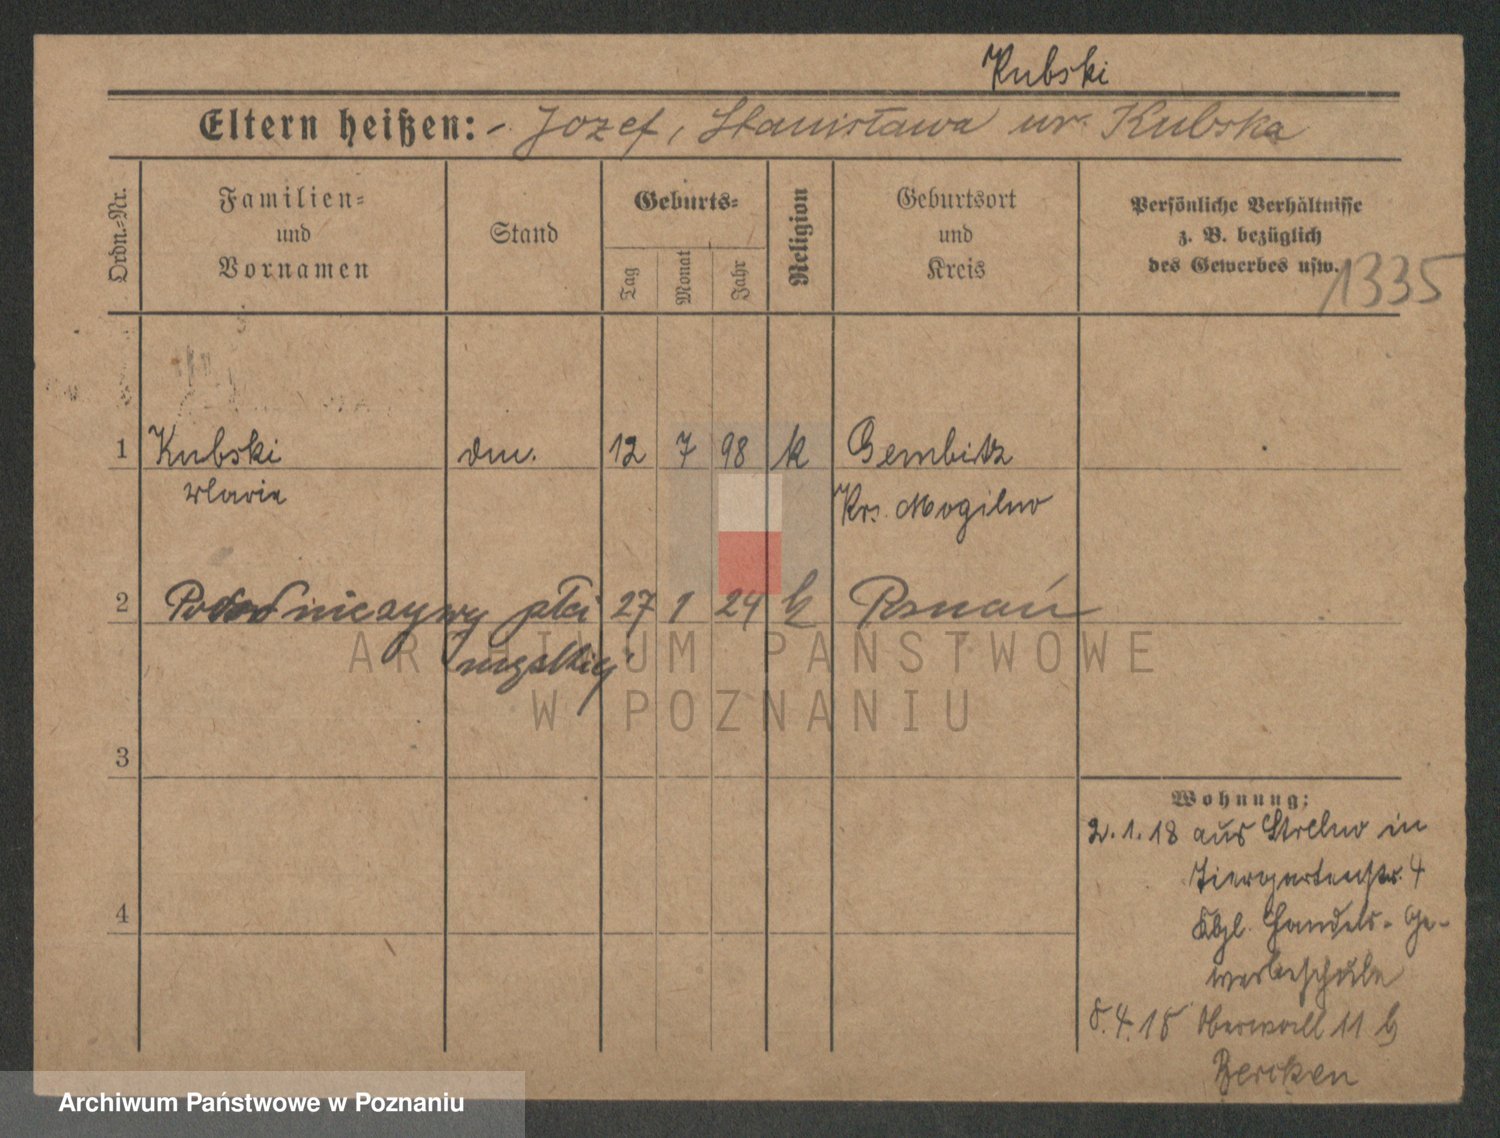 Kubski
Eltern heißen: - Jozef, Stanisława ur. Kubska
Ordn.=Nr.
Familien=
und
Vornamen
Stand
Geburts=
Tag
Monat
Jahr
Religion
Geburtsort
und
Kreis
Persönliche Verhältnisse
z. B. bezüglich
des Gewerbes usw.
1335
1 Kubski dm. 12 7 98 k Gembitz
Maria Krs. Mogilno
2 nieżywy płci 27 1 24 k Poznań
męskiej
ARCHIWUM PAŃSTWOWE
W POZNANIU
3
Wohnung:
2.1.18 aus Strelno in
Tiergartenstr. 4
Kgl. Handels- Ge-
werbeschule
4
8.4.18 Oberwall 11 b
Archiwum Państwowe w Poznaniu